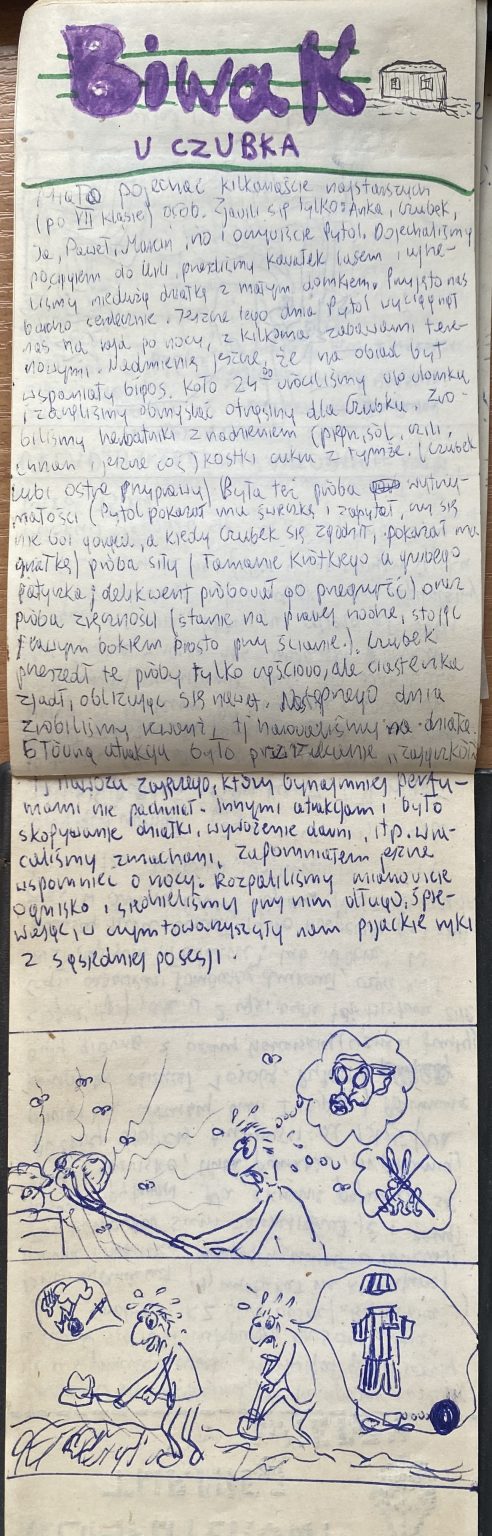 Biwak
U CZUBKA
Miało pojechać kilkanaście najstarszych
(po VII klasie) osób. Zjawili się tylko: Anka, Czubek,
Ja, Paweł, Marcin, no i oczywiście Pytol. Dojechaliśmy
pociągiem do Urli, przeszliśmy kawałek lasem i ujrze-
liśmy niedużą działkę z małym domkiem. Przyjęto nas
bardzo serdecznie. Jeszcze tego dnia Pytol wyciągnął
nas na rajd po nocy, z kilkoma zabawami tere-
nowymi. Nadmienię jeszcze, że na obiad był
wspaniały bigos. Koło 24⁰⁰ wróciliśmy do domku
i zaczęliśmy obmyślać otrzęsiny dla Czubka. Zro-
biliśmy herbatniki z nadzieniem (pieprz, sól, czili,
chrzan i jeszcze coś) kostki cukru z tymże. (Czubek
lubi ostre przyprawy) Była też próba wytrzy-
małości (Pytol pokazał mu świeczkę i zapytał, czy się
nie boi gorąca, a kiedy Czubek się zgodził, pokazał mu
próba siły (łamanie krótkiego a grubego
patyczka; delikwent próbował go przegryźć) oraz
próba zręczności (stanie na prawej nodze, stojąc
prawym bokiem prosto przy ścianie.). Czubek
przeszedł te próby tylko częściowo, ale ciasteczka
zjadł, oblizując się nawet. Następnego dnia
zrobiliśmy kwant, tj harowaliśmy na działce.
Główną atrakcją było przerzucanie
tj nawozu zajęczego, który bynajmniej perfu-
mami nie pachniał. Innymi atrakcjami było
skopywanie działki, wywożenie darni, itp. wra-
caliśmy zmachani. Zapomniałem jeszcze
wspomnieć o nocy. Rozpaliliśmy mianowicie
ognisko i siedzieliśmy przy nim długo, śpie-
wając, w czym towarzyszyły nam pijackie ryki
z sąsiedniej posesji.